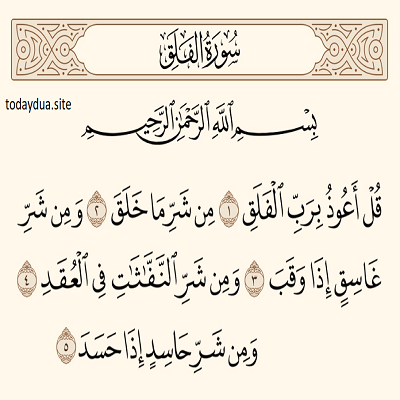 سُورَةُ الْفَلَقِ
todaydua.site
بِسْمِ ٱللَّهِ ٱلرَّحْمَٰنِ ٱلرَّحِيمِ
قُلْ أَعُوذُ بِرَبِّ ٱلْفَلَقِ ١ مِن شَرِّ مَا خَلَقَ ٢ وَمِن شَرِّ
غَاسِقٍ إِذَا وَقَبَ ٣ وَمِن شَرِّ ٱلنَّفَّٰثَٰتِ فِى ٱلْعُقَدِ ٤
وَمِن شَرِّ حَاسِدٍ إِذَا حَسَدَ ٥